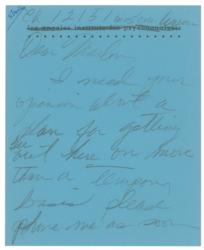 Dear Marlon
I need your
opinion about a
plan for getting
out here on more
than a temporary
basis please
phone me as soon